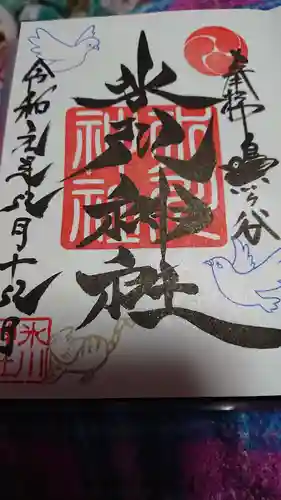 奉拝 鳩ヶ谷
氷川神社
氷川
神社
令和元年五月十五日
氷川